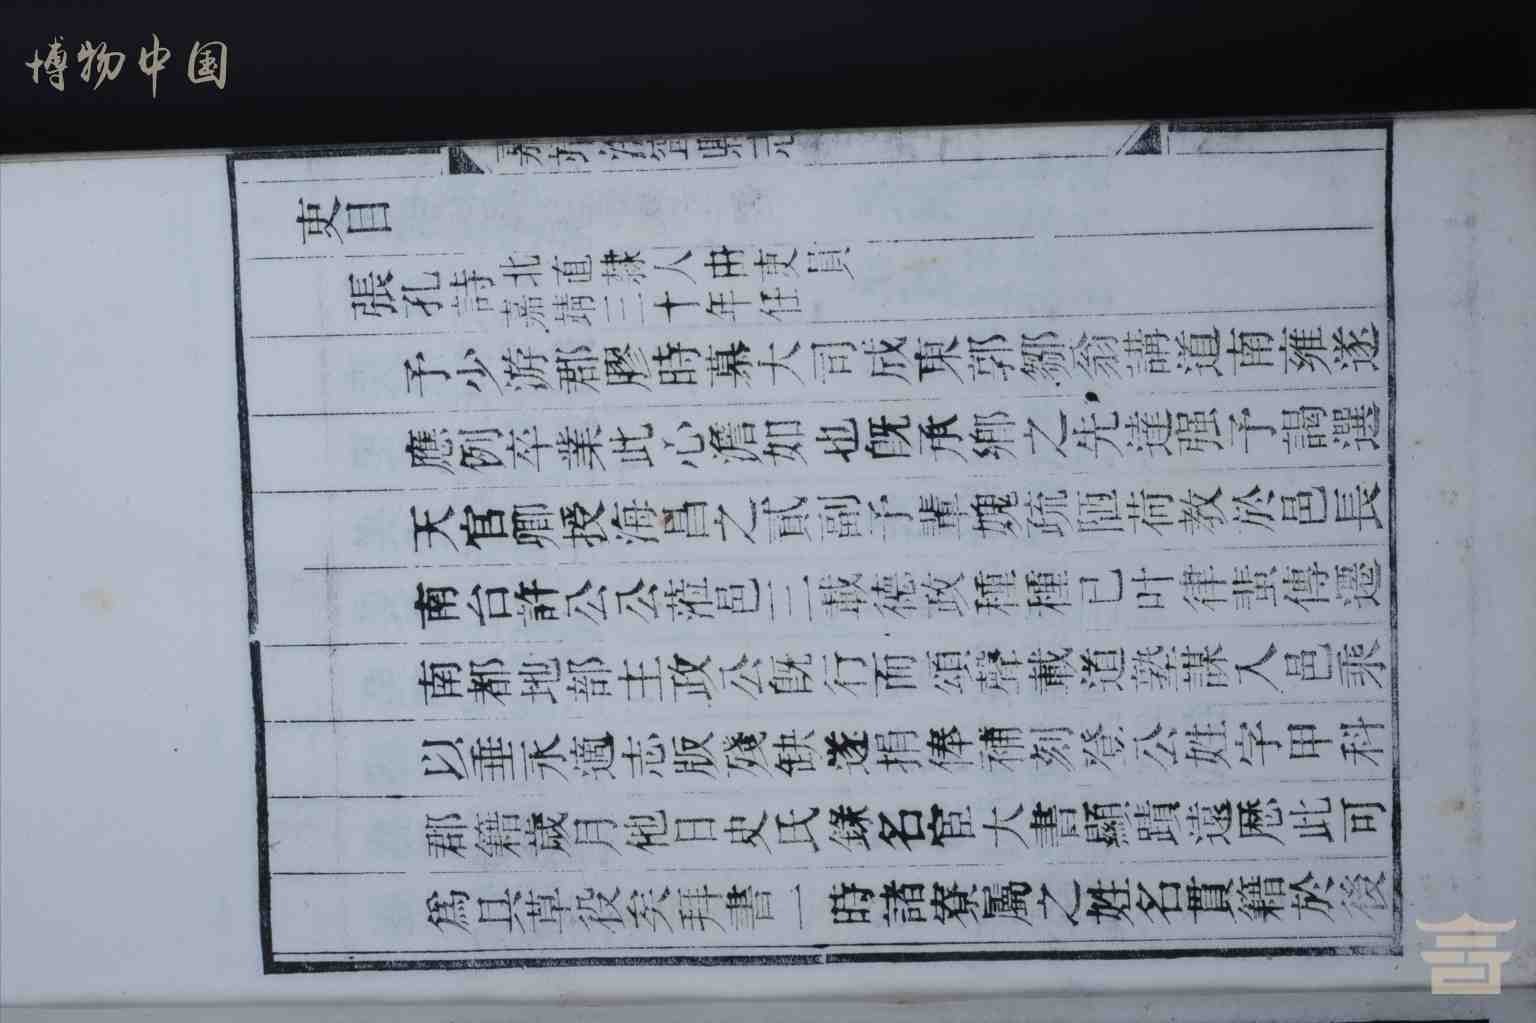 博物中国
吏目
張孔詩 北直隸人由吏員
嘉靖三十年任
予少游郡膠時慕大司成東郭鄒翁講道南雍遂
應例卒業此心澹如也旣承鄉之先達强予謁選
天官卿授海昌之貳副予輩媿疏陋荷教於邑長
南台許公公蒞邑三載德政種種已叶律蜚傳遷
南都地部主政公旣行而頌聲載道謀入邑乘
以垂永適志版殘缺遂捐俸補刻登公姓字甲科
郡籍歲月他日史氏錄名宦大書顯蹟遠歷此可
爲具草役矣拜書一時諸寮屬之姓名貫籍於後